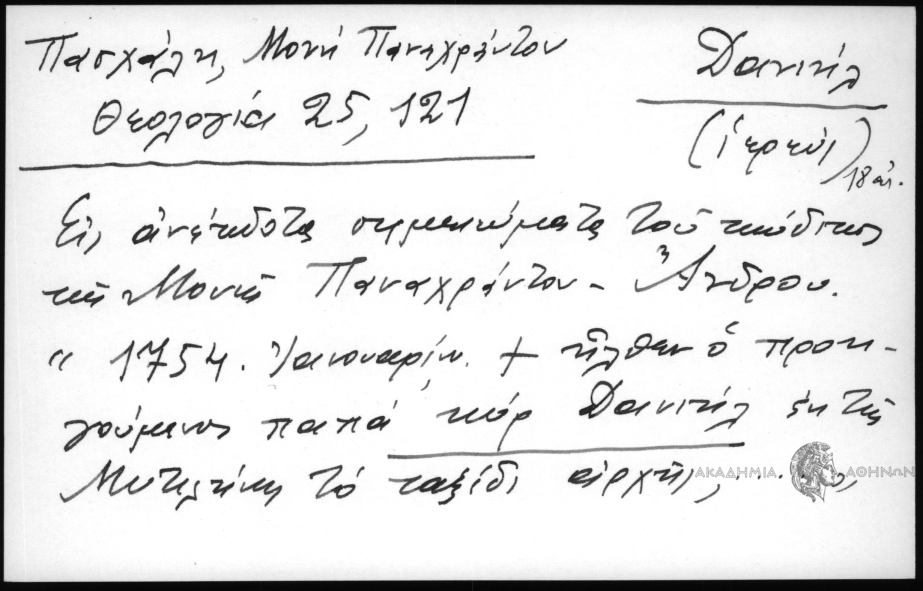 Πασχάλη, Μονή Παναχράντου
Θεολογία 25, 121
Δανιήλ
(ἱερεύς)
18 αἰ.
Εἰς ἀνέκδοτα σημειώματα τοῦ κώδικος
τῆς Μονῆς Παναχράντου - Ἄνδρου.
" 1754. Ἰαννουαρίου. + ἦλθεν ὁ προη-
γούμενος παπά κύρ Δανιήλ ἐκ τῆς
Μυτιλήνης τό ταξίδι
ΑΚΑΔΗΜΙΑ ΑΘΗΝΩΝ